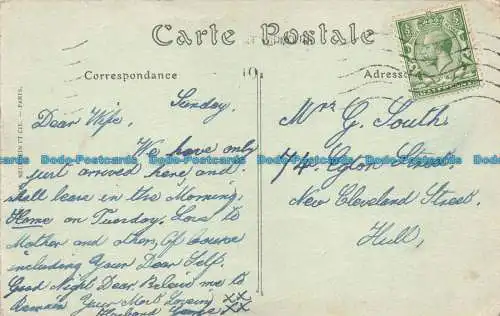 Carte Postale
Correspondance
Adresse
Sunday.
Dear Wife,
We have only
just arrived here, and
shall leave in the Morning,
Home on Tuesday. Love to
Mother and others, of course
including Your Dear Self.
Good Night Dear. Believe me to
Remain Your Most Loving xx
Husband George. xx
Mrs G. South.
74. Egton Street.
New Cleveland Street.
Hull,
Dodo-Postcards Dodo-Postcards Dodo-Postcards Dodo-Postcards Dodo-Postcards